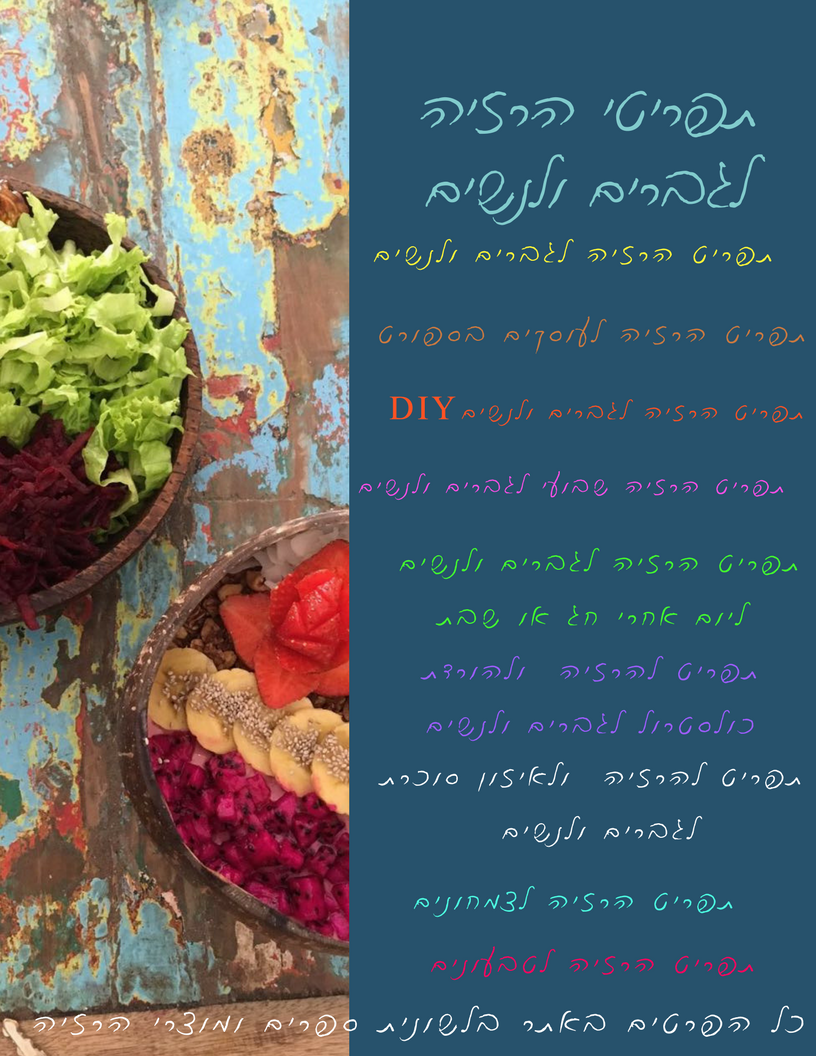 תפריטי הרזיה
לגברים ולנשים
תפריט הרזיה לגברים ולנשים
תפריט הרזיה לעוסקים בספורט
תפריט הרזיה לגברים ולנשים DIY
תפריט הרזיה שבועי לגברים ולנשים
תפריט הרזיה לגברים ולנשים
ליום אחרי חג או שבת
תפריט להרזיה ולהורדת
כולסטרול לגברים ולנשים
תפריט להרזיה ולאיזון סוכרת
לגברים ולנשים
תפריט הרזיה לצמחונים
תפריט הרזיה לטבעונים
כל הפרטים באתר בלשונית ספרים ומוצרי הרזיה